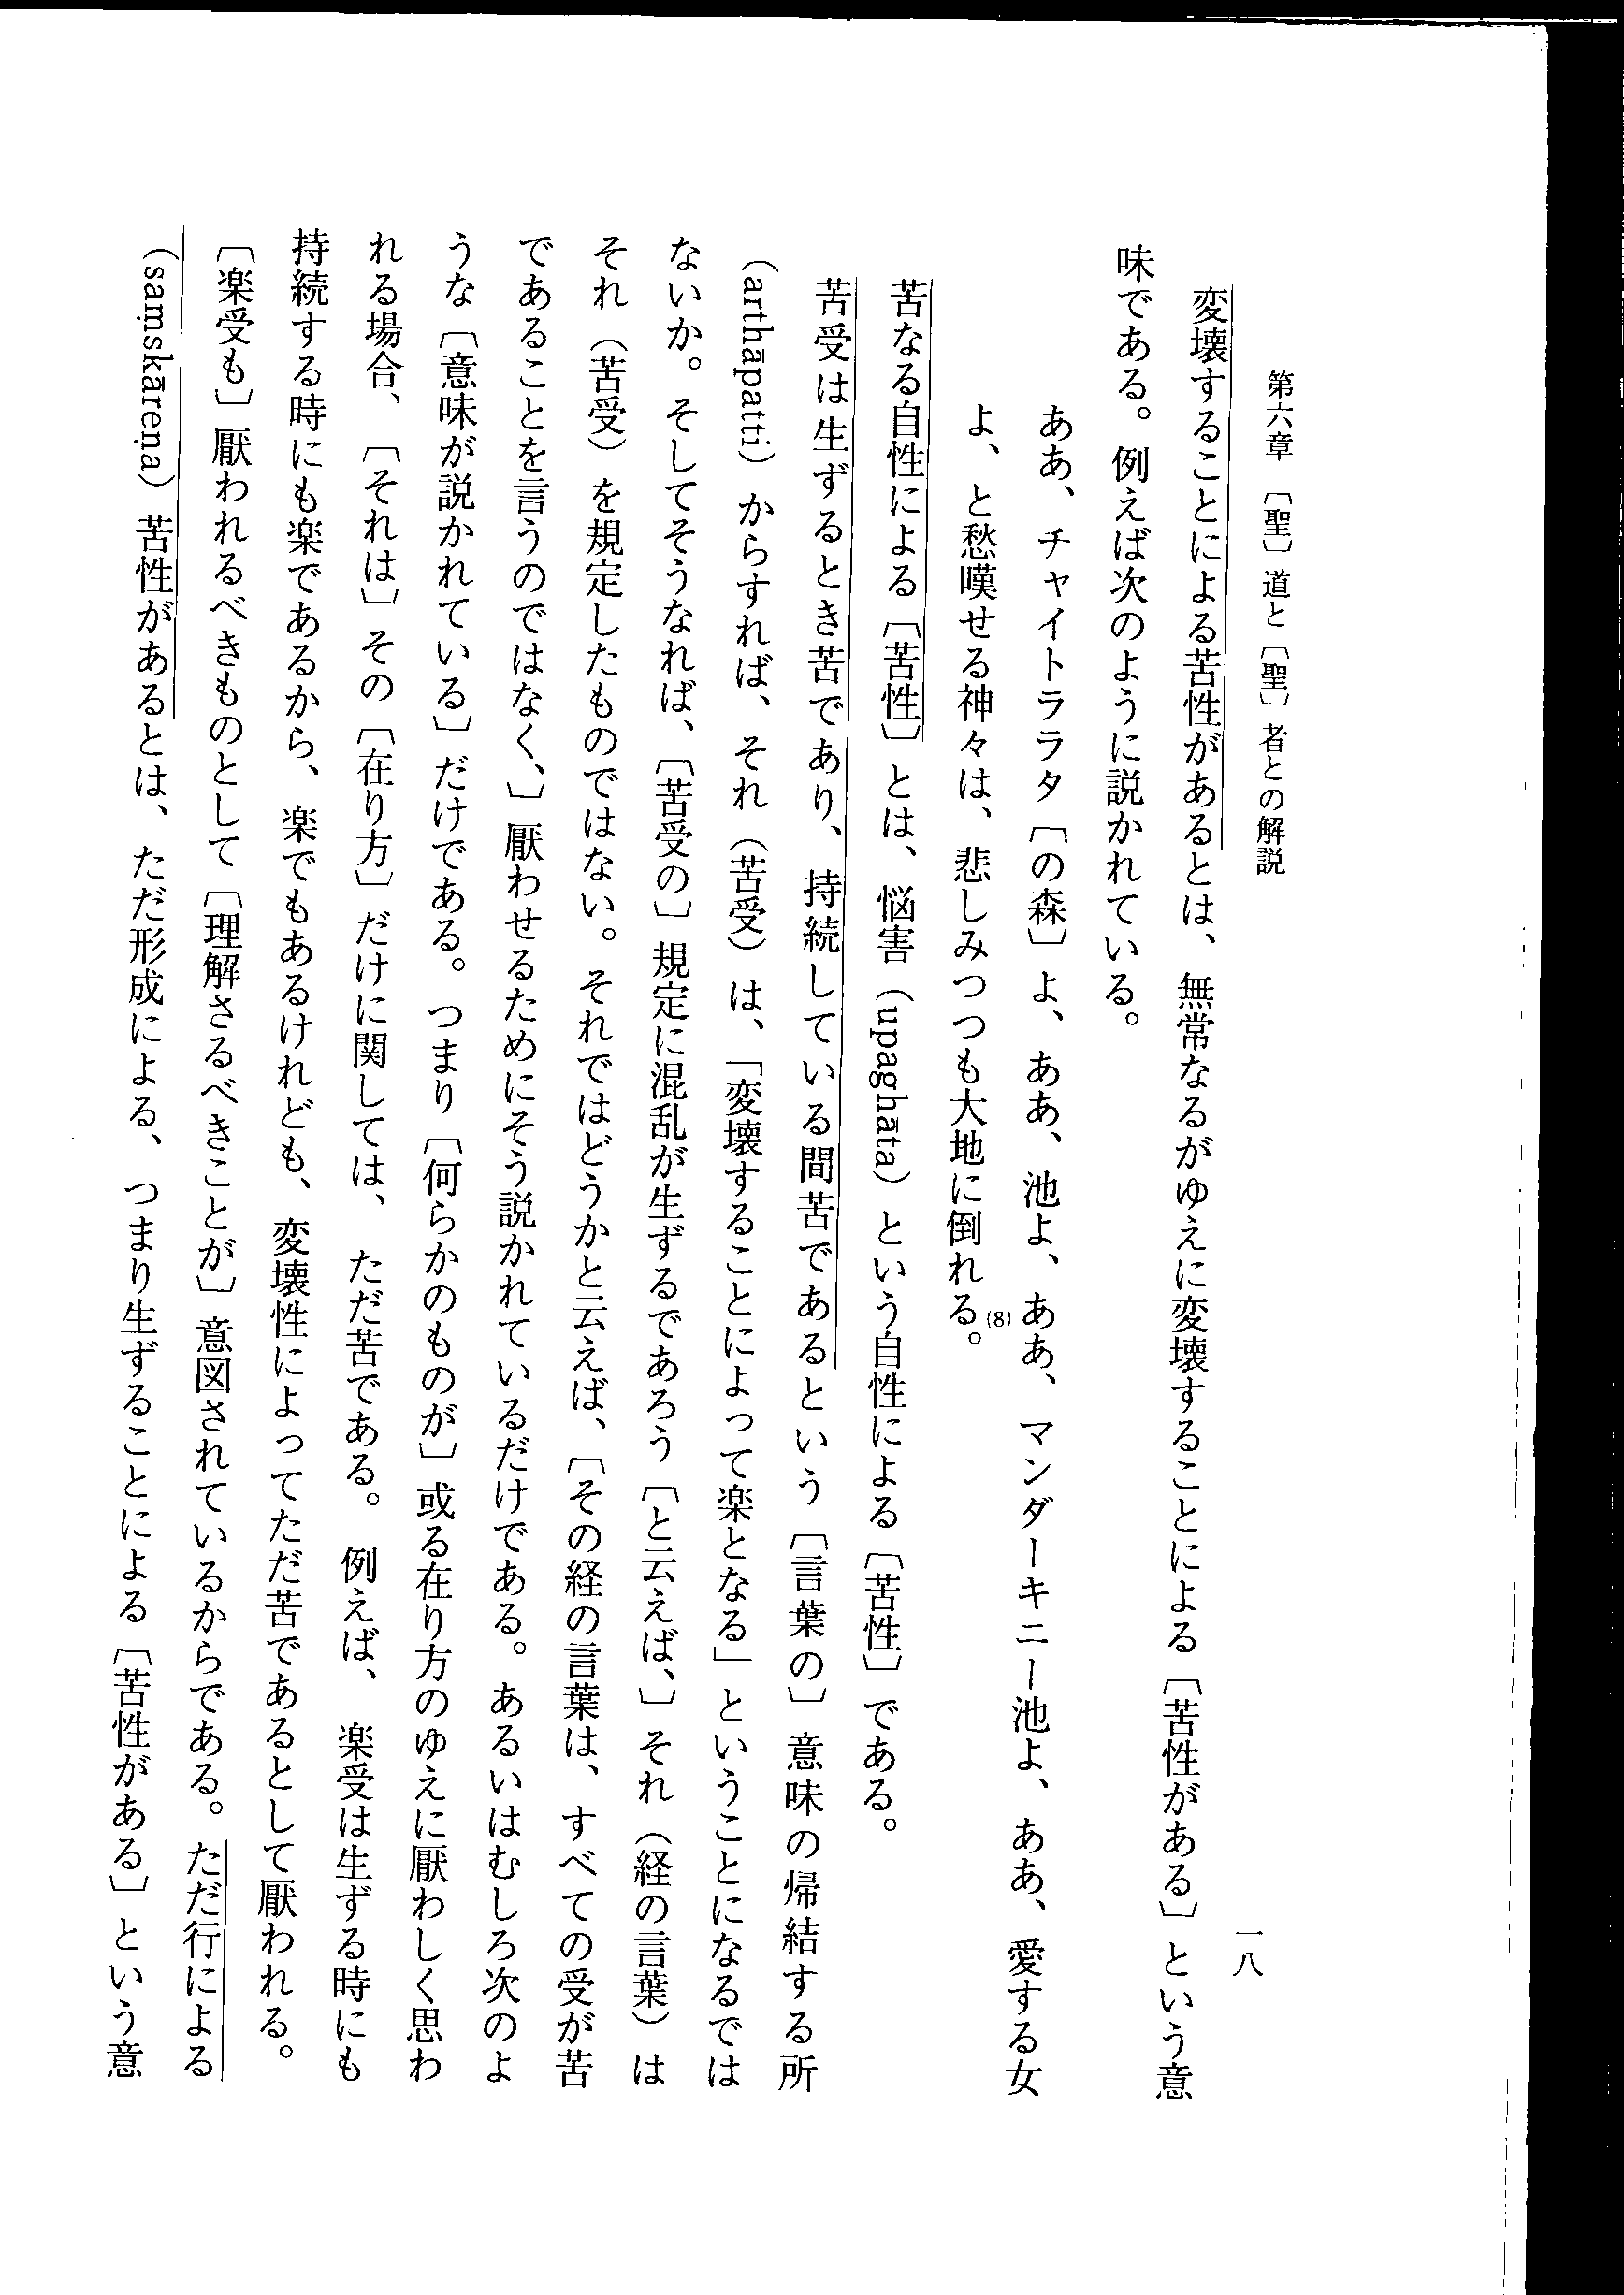 第六章 〔聖〕道と〔聖〕者との解説
一八
変壊することによる苦性があるとは、無常なるがゆえに変壊することによる〔苦性がある〕という意
味である。例えば次のように説かれている。
ああ、チャイトララタ〔の森〕よ、ああ、池よ、ああ、マンダーキニー池よ、ああ、愛する女
よ、と愁嘆せる神々は、悲しみつつも大地に倒れる。(8)
苦なる自性による〔苦性〕とは、悩害（upaghāta）という自性による〔苦性〕である。
苦受は生ずるとき苦であり、持続している間苦であるという〔言葉の〕意味の帰結する所
（arthāpatti）からすれば、それ（苦受）は、「変壊することによって楽となる」ということになるでは
ないか。そしてそうなれば、〔苦受の〕規定に混乱が生ずるであろう〔と云えば、〕それ（経の言葉）は
それ（苦受）を規定したものではない。それではどうかと云えば、〔その経の言葉は、すべての受が苦
であることを言うのではなく、〕厭わせるためにそう説かれているだけである。あるいはむしろ次のよ
うな〔意味が説かれている〕だけである。つまり〔何らかのものが〕或る在り方のゆえに厭わしく思わ
れる場合、〔それは〕その〔在り方〕だけに関しては、ただ苦である。例えば、楽受は生ずる時にも
持続する時にも楽であるから、楽でもあるけれども、変壊性によってただ苦であるとして厭われる。
〔楽受も〕厭われるべきものとして〔理解さるべきことが〕意図されているからである。ただ行による
（saṃskāreṇa）苦性があるとは、ただ形成による、つまり生ずることによる〔苦性がある〕という意